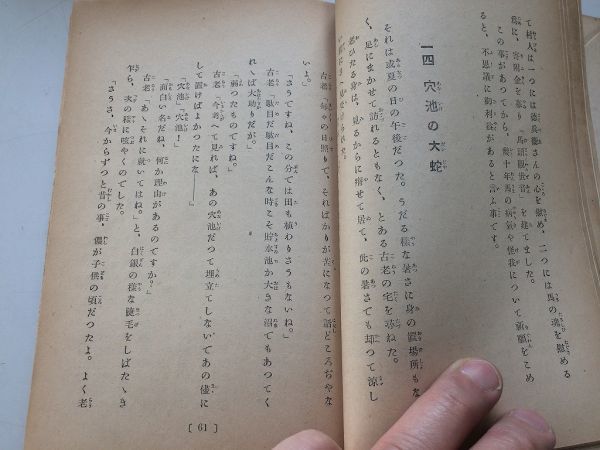 て村人は一つには徳良徳さんの心を慰め、二つには馬の魂を慰める
為に、寄附金を募り「馬頭観世音」を建てました。
この事があつてから、幾十年馬の病気や怪我について祈願をこめ
ると、不思議に御利益があると言ふ事です。
一四 穴池の大蛇
それは或夏の日の午後だつた。うだる様な暑さに身の置場所もな
く、足にまかせて訪れるともなく、とある古老の宅を尋ねた。
老ひたる身は、見るからに瘠せて居て、此の暑さでも却つて涼し
古老「毎日の日照りで、そればかりが苦になつて話どころぢやな
いよ。」
「さうですね、この分では田も植わりさうもないね。」
古老「駄目だ駄目だこんな時こそ貯水池か大きな沼でもあつてく
れゝば大助りだが。」
「弱つたものですね。」
古老「今考へて見れば、あの穴池だつて埋立てしないであの儘に
して置けばよかつたにな――」
「穴池！穴池！」
「面白い名だね、何か理由があるのですか。」
古老「あゝそれに就いてはね。」と、白銀の様な睫毛をしばたゝき
乍ら、次の様に呟やくのでした。
「さうさ、今からずつと昔の事、儂が子供の頃だつたよ。よく老
[ 61 ]